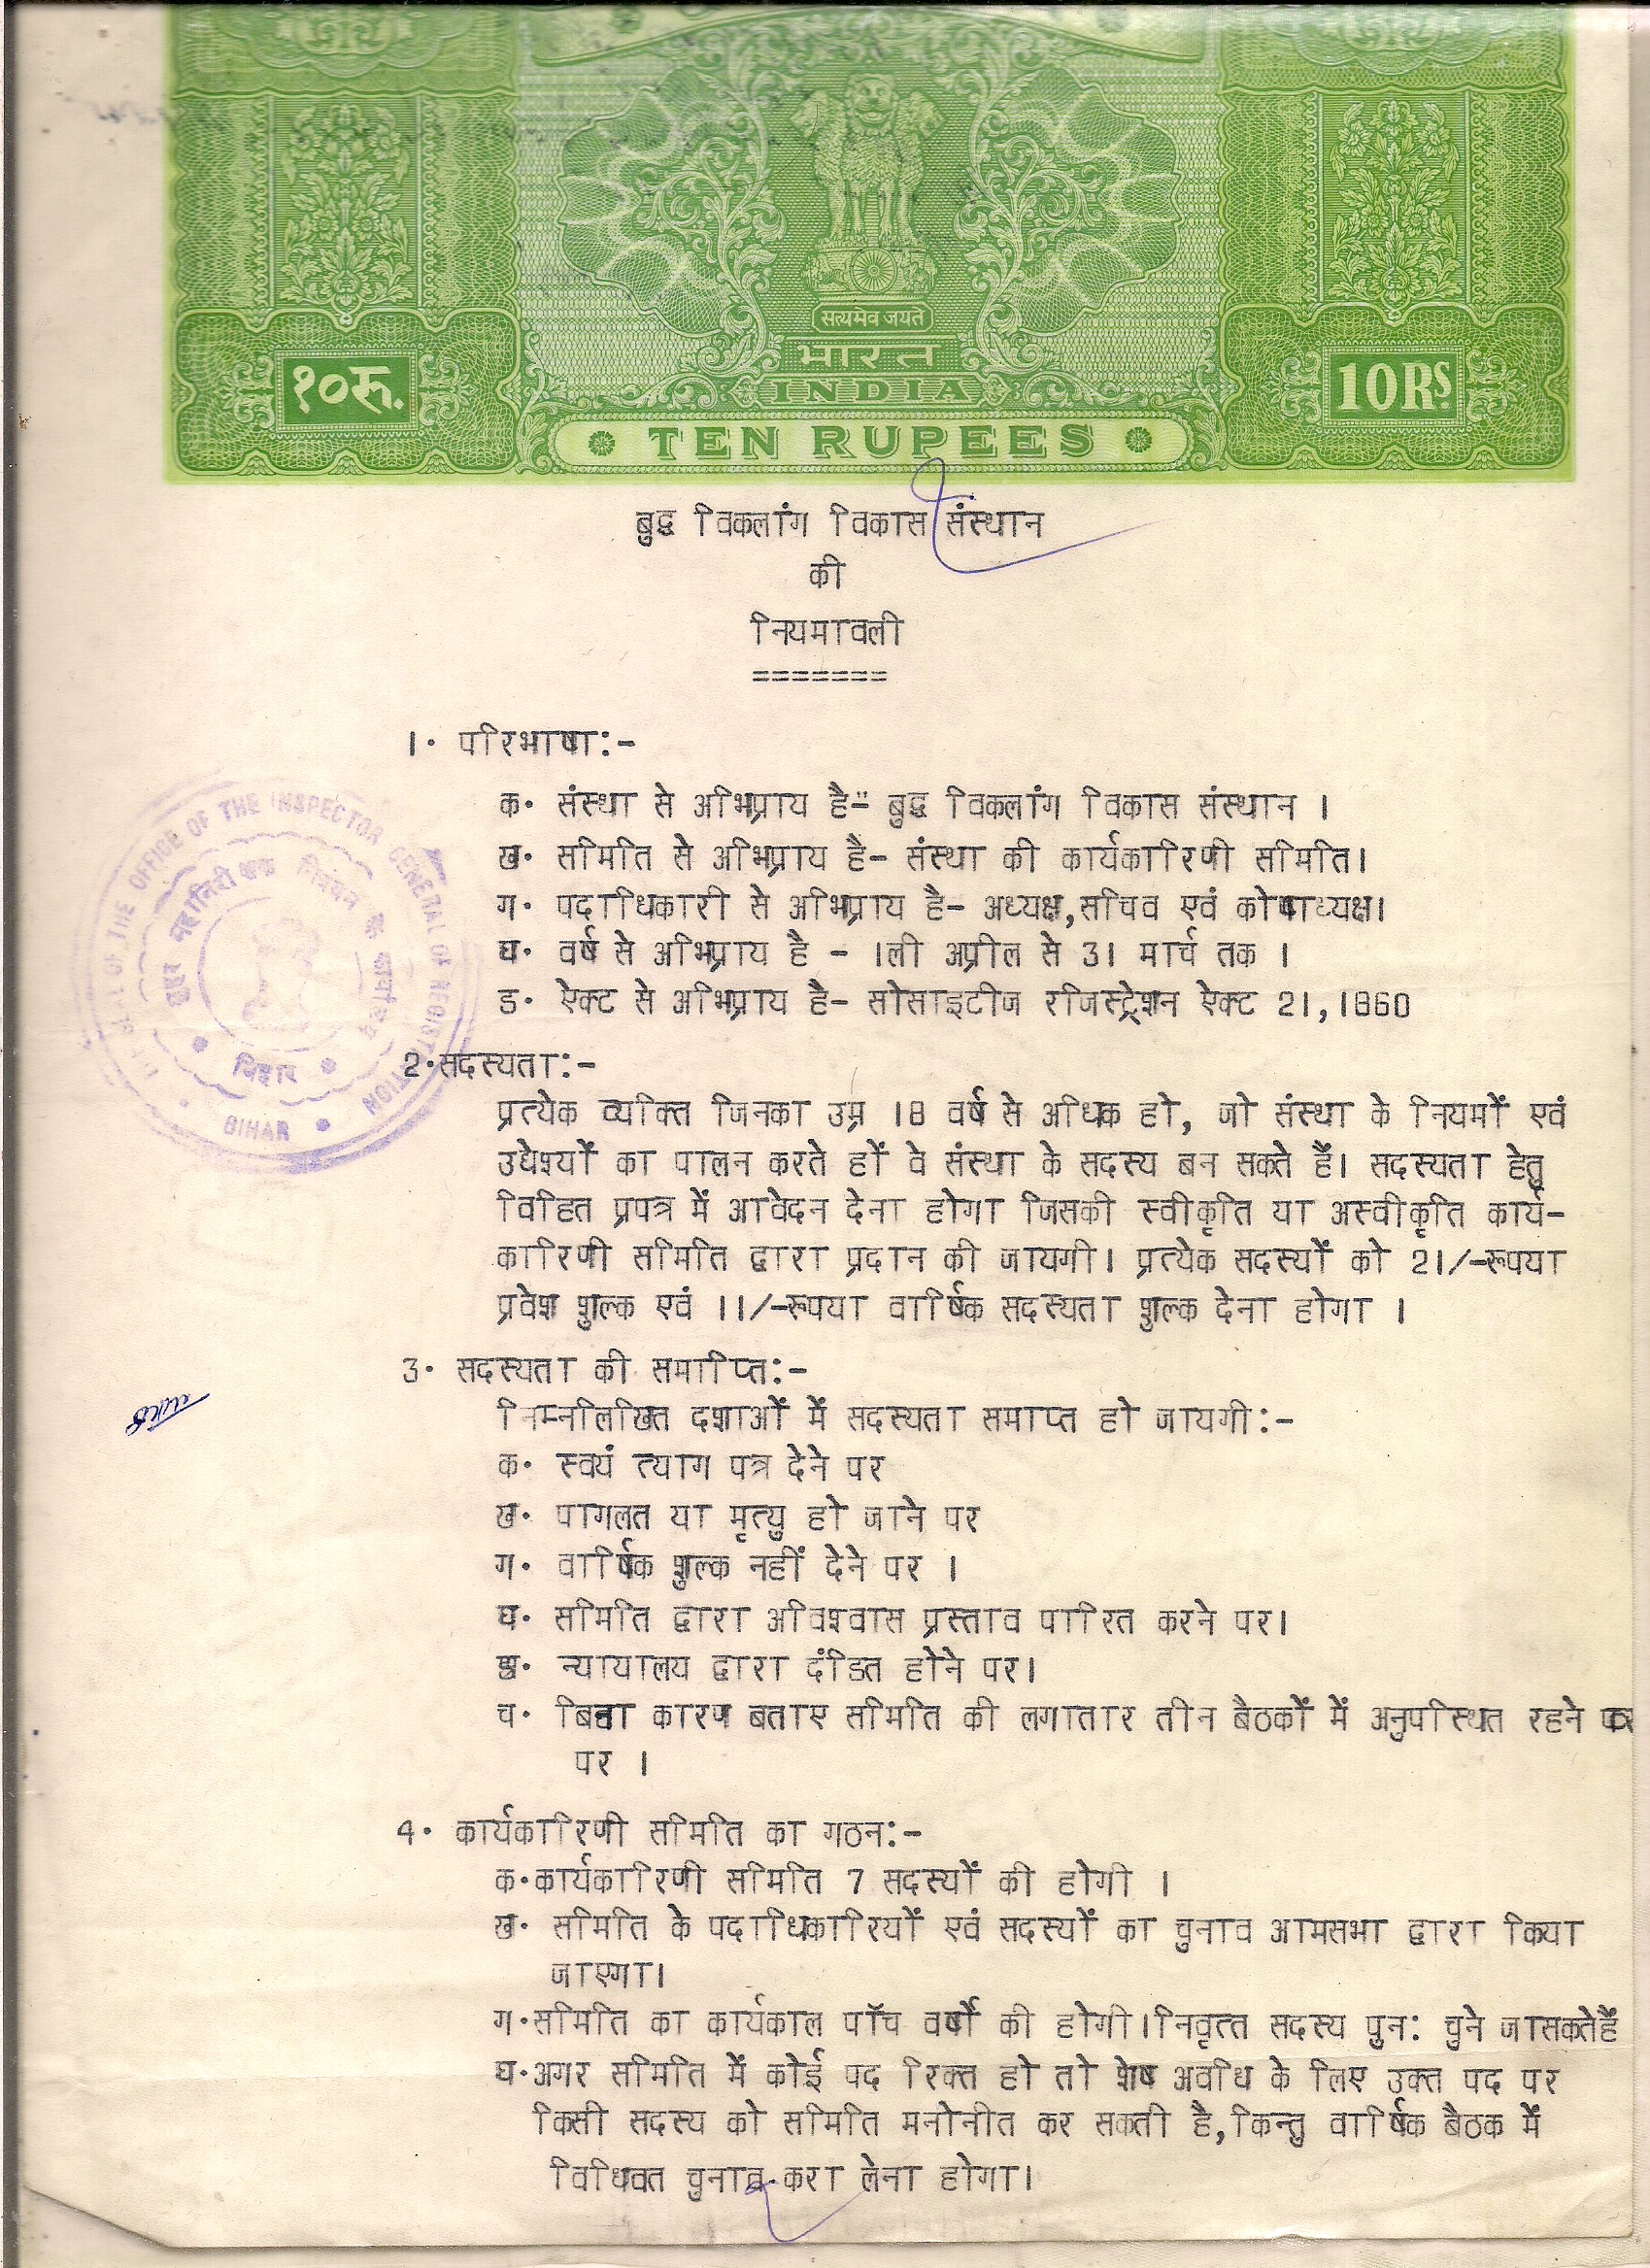 सत्यमेव जयते
भारत
INDIA
१०रू.
10RS.
TEN RUPEES
बुद्ध विकलांग विकास संस्थान
की
नियमावली
=======
1. परिभाषा:-
क. संस्था से अभिप्राय है-" बुद्ध विकलांग विकास संस्थान ।
ख. समिति से अभिप्राय है- संस्था की कार्यकारिणी समिति।
ग. पदाधिकारी से अभिप्राय है- अध्यक्ष,सचिव एवं कोषाध्यक्ष।
घ. वर्ष से अभिप्राय है - 1ली अप्रील से 31 मार्च तक ।
ड. ऐक्ट से अभिप्राय है- सोसाइटीज रजिस्ट्रेशन ऐक्ट 21,1860
THE OFFICE OF THE INSPECTOR GENERAL OF REGISTRATION
बिहार
BIHAR
2.सदस्यता:-
प्रत्येक व्यक्ति जिनका उम्र 18 वर्ष से अधिक हो, जो संस्था के नियमों एवं
उद्येश्यों का पालन करते हों वे संस्था के सदस्य बन सकते हैं। सदस्यता हेतु
विहित प्रपत्र में आवेदन देना होगा जिसकी स्वीकृति या अस्वीकृति कार्य-
कारिणी समिति द्वारा प्रदान की जायगी। प्रत्येक सदस्यों को 21/-रूपया
प्रवेश शुल्क एवं 11/-रूपया वार्षिक सदस्यता शुल्क देना होगा ।
3. सदस्यता की समाप्ति:-
निम्नलिखित दशाओं में सदस्यता समाप्त हो जायगी:-
क. स्वयं त्याग पत्र देने पर
ख. पागलत या मृत्यु हो जाने पर
ग. वार्षिक शुल्क नहीं देने पर ।
घ. समिति द्वारा अविश्वास प्रस्ताव पारित करने पर।
न्यायालय द्वारा दंडित होने पर।
च. बिना कारण बताए समिति की लगातार तीन बैठकों में अनुपस्थित रहने
पर ।
4. कार्यकारिणी समिति का गठन:-
क.कार्यकारिणी समिति 7 सदस्यों की होगी ।
ख. समिति के पदाधिकारियों एवं सदस्यों का चुनाव आमसभा द्वारा किया
जाएगा।
ग.समिति का कार्यकाल पॉच वर्षो की होगी।निवृत्त सदस्य पुन: चुने जासकतेहैं
घ.अगर समिति में कोई पद रिक्त हो तो शेष अवधि के लिए उक्त पद पर
किसी सदस्य को समिति मनोनीत कर सकती है,किन्तु वार्षिक बैठक में
विधिवत चुनाव करा लेना होगा।